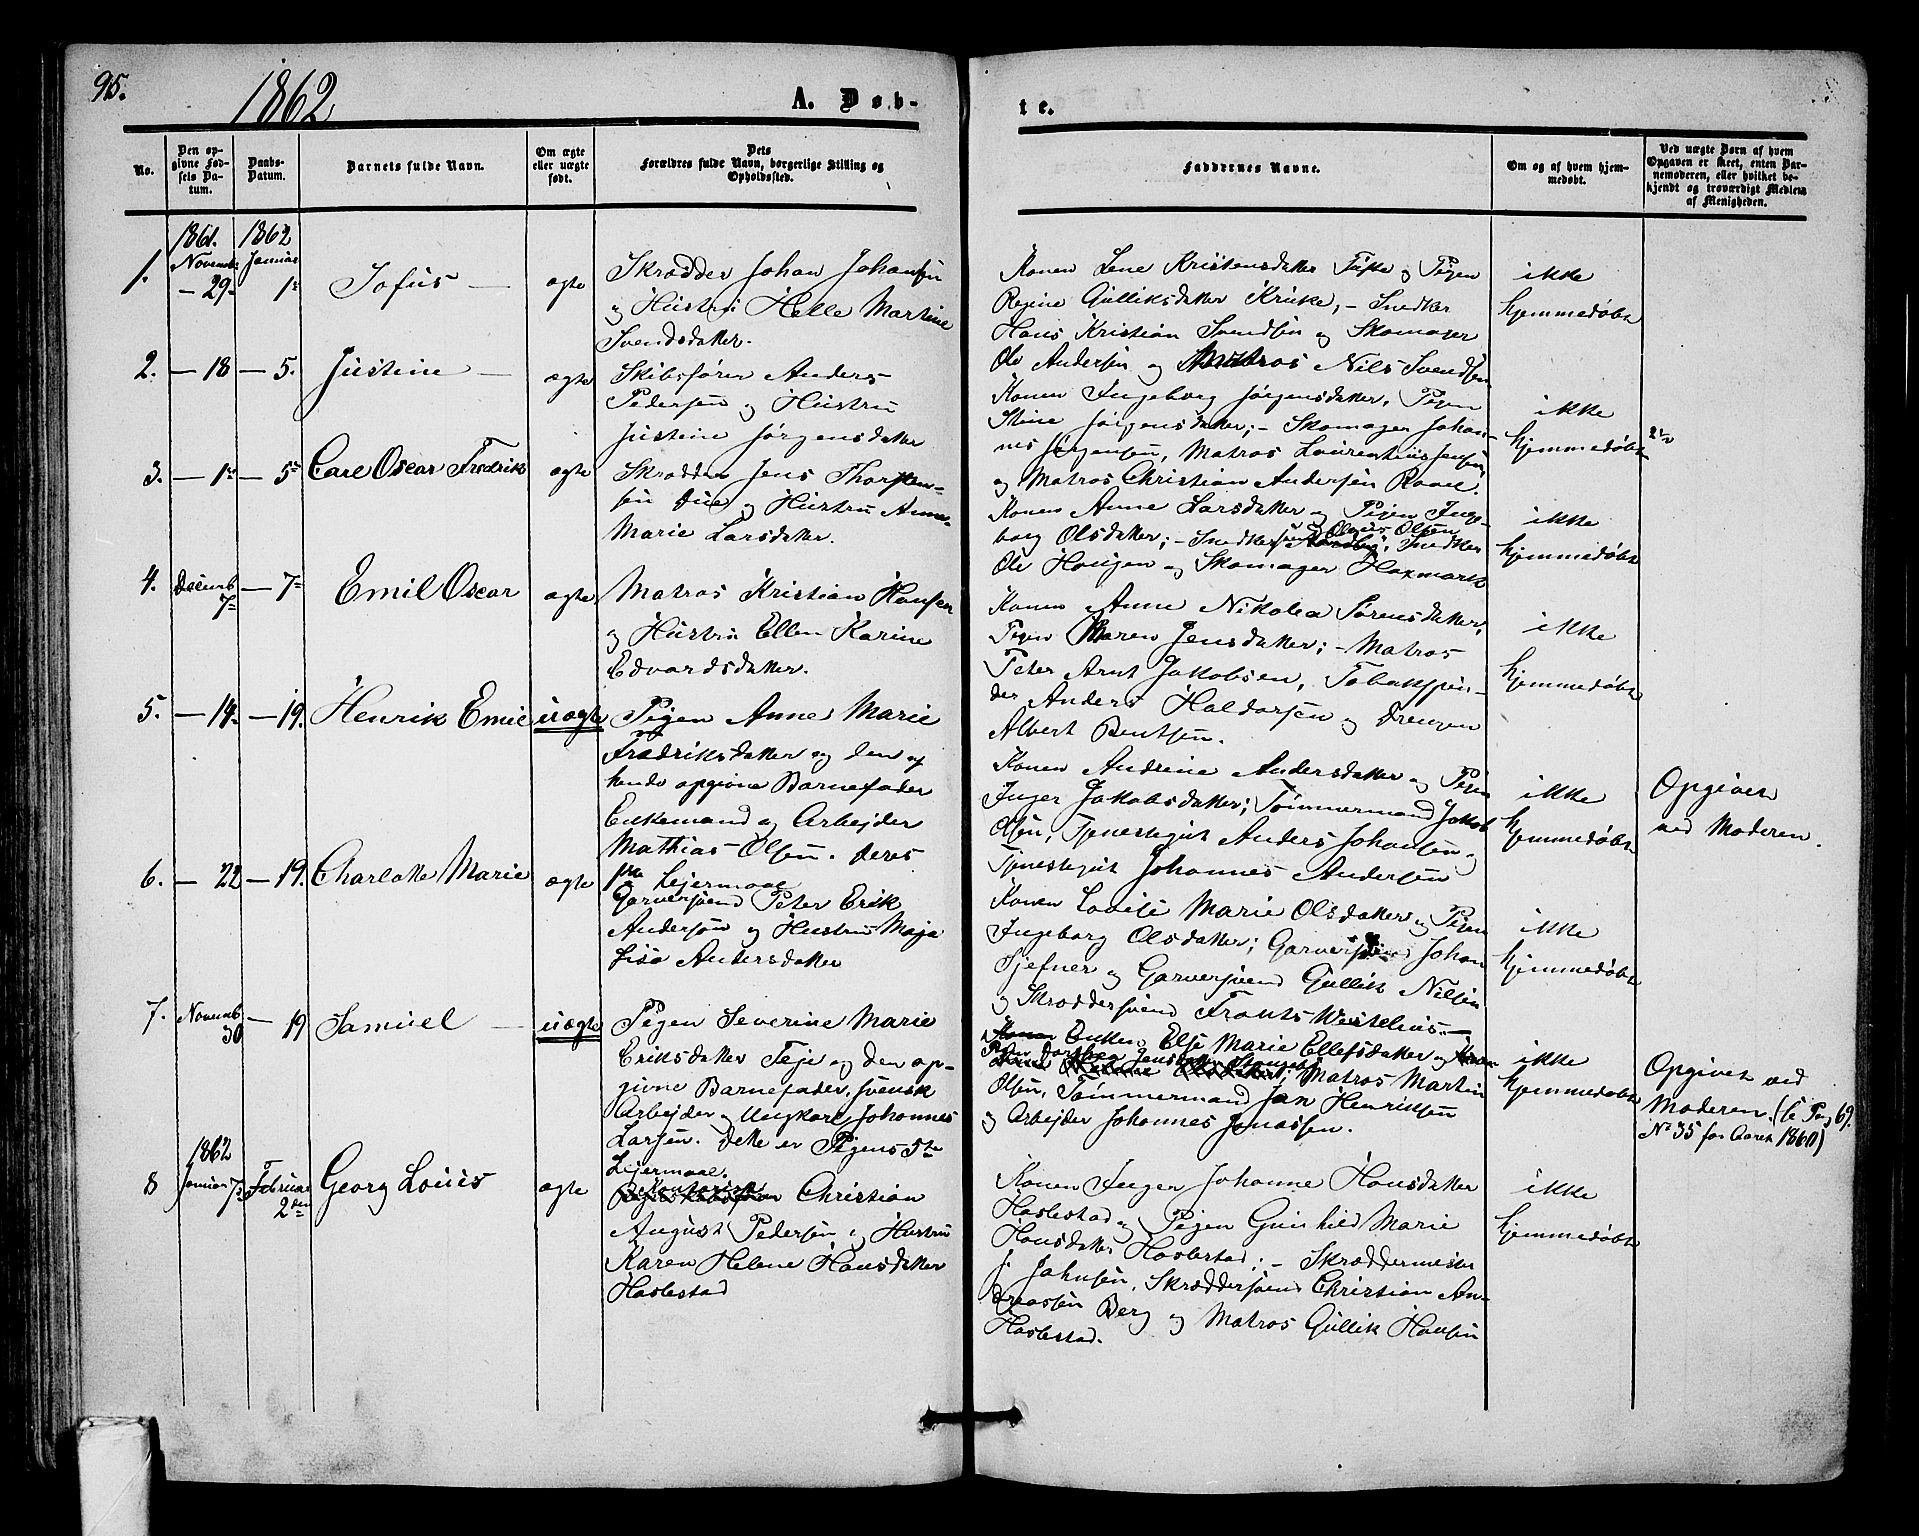 95.
1862
A. Døb-
te.
No.
Den op-
givne Fød-
sels Da-
tum.
Daabs-
Datum.
Barnets fulde Navn.
Om ægte
eller uægte
født.
Dets
Forældres fulde Navn, borgerlige Stilling og
Opholdssted.
Faddernes Navne.
Om og af hvem hjem-
medøbt.
Ved uægte Børn af hvem
Opgaven er skeet, enten Bar-
nemoderen, eller hvilket be-
kjendt og troværdigt Medlem
af Menigheden.
1861. 1862
1. Novemb: Januar
— 29. 1ste Sofus — ægte
Skrædder Johan Johansen
og Hustru Helle Martine
Svendsdatter.
Konen Lene Kristensdatter og Pigen
Regine Gulliksdatter Krukе, — Snedker
Hans Kristian Svendsen og Skomager
Ole Andersen og Matros Nils Svendsen
ikke
hjemmedøbt
2. — 18 — 5. Justine — ægte
Skibsfører Anders
Pedersen og Hustru
Justine Jørgensdatter
Konen Ingeborg Jørgensdatter, Pigen
Stine Jørgensdatter; — Skomager Johan-
nes Jørgensen, Matros Laurentius Jensen,
og Matros Christian Andersen
ikke
hjemmedøbt
3. — 1ste — 5te Carl Oscar Fredrik ægte
Skrædder Jens Thorsten-
sen Due og Hustru Anne
Marie Larsdatter.
Konen Anne Larsdatter og Pigen Inge-
borg Olsdatter; — Snedkersvend Olsen, Snedker
Ole Haugen og Skomager Haxmark
ikke
hjemmedøbt
4. Decemb
7de — 7de Emil Oscar ægte
Matros Kristian Hansen
og Hustru Ellen Karine
Edvardsdatter.
Konen Anne Nikolea Sørensdatter,
Pigen Maren Jensdatter; — Matros
Peter Arnt Jakobsen, Tobakspin-
der Anders Haldorsen og Drengen
Albert Bentsen.
ikke
hjemmedøbt
5. — 14. — 19. Henrik Emil uægte
Pigen Anne Marie
Fredriksdatter og den af
hende opgivne Barnefader
Enkemand og Arbejder
Mathias Olsen. Deres
Lejermaal
Konen Andrine Andersdatter og Pigen
Inger Jakobsdatter; Tømmermand Jakob
Olsen, Tjenestegut Anders Johansen og
Tjenestegut Johannes Andersen
ikke
hjemmedøbt
Opgivet
ved Moderen.
6. — 22 — 19. Charlotte Marie ægte
Garversvend Peter Erik
Andersen og Hustru Maja
Lisa Andersdatter
Konen Lovise Marie Olsdatter og Pigen
Ingeborg Olsdatter; Garversvend Johan
Sjefner og Garversvend Gullik Nilsen
og Skræddersvend Frants Westelius. —
ikke
hjemmedøbt
7. Novemb
30 — 19 Samuel — uægte
Pigen Severine Marie
Eriksdatter Teje og den op-
givne Barnefader, svensk
Arbejder og Ungkarl Johannes
Larsen. Dette er Pigens 5te
Lejermaal.
Enken Else Marie Ellefsdatter og
Pigen Jensdatter; Matros Martin
Olsen, Tømmermand Jan Henriksen
og Arbejder Johannes Jonassen.
ikke
hjemmedøbt
Opgivet ved
Moderen (se Pag 69.
No 35 for Aaret 1860)
1862
8 Januar 7de Februar
2den Georg Louis ægte
Christian
August Pedersen og Hustru
Karen Helene Hansdatter
Haslestad
Konen Inger Johanne Hansdatter
Haslestad og Pigen Gunhild Marie
Hansdatter Haslestad; — Skræddermester
J. Johnsen, Skræddersvend Christian An-
dreassen Berg og Matros Gullik Hansen
Haslestad.
ikke
hjemmedøbt